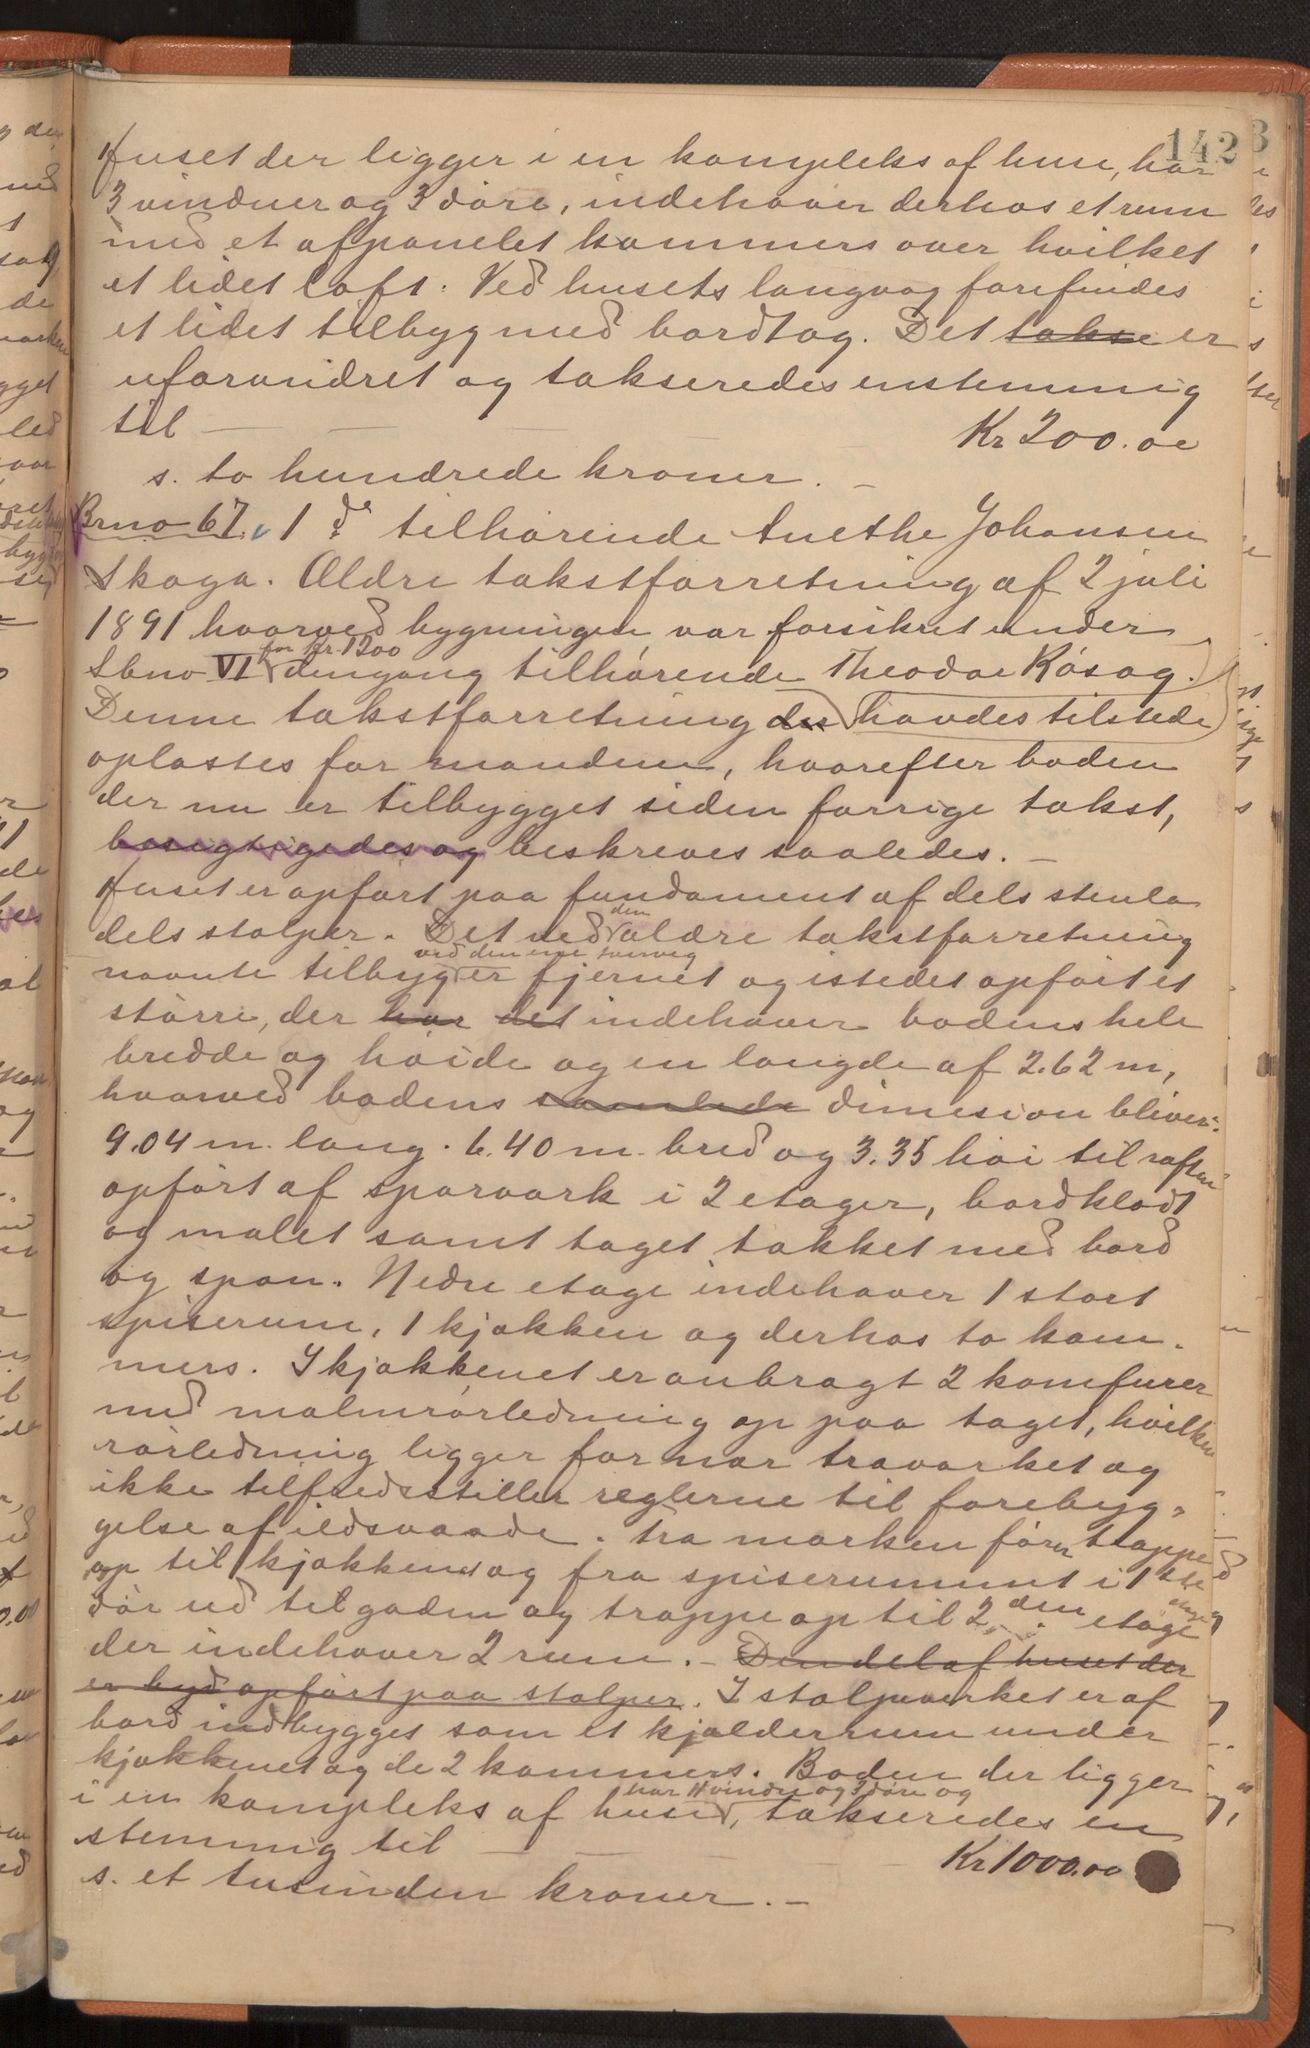 142
Huset der ligger i en kompleks af huse, har
3 vinduer og 3 døre, indehaver derhos et rum
med et afpanelet kammers over hvilket
et lidet loft. Ved husets langvæg forefindes
et lidet tilbyg med bordtag. Det takse er
uforandret og takseredes enstemmig
til — — — — Kr 200.00
s. to hundrede kroner. —
Brno 67, 1 do tilhørende Anethe Johansen
Skaga. Ældre takstforretning af 2 juli
1891 hvorved bygningen var forsikret under
for Kr. 1200
Sbno VI dengang tilhørende Theodor Røsag.
Denne takstforretning des havdes tilstede
oplæstes for mændene, hvorefter boden
der nu er tilbygget siden forrige takst,
besigtigedes og beskreves saaledes. —
Huset er opført paa fundament af dels stenla
dels stolper. Det ved den ældre takstforretning
ved den ene tverveg
nævnte tilbyg er fjernet og istedet opført et
større, der har det indehaver bodens hele
bredde og høide og en længde af 2.62 m,
hvorved bodens samlede dimesion bliver:
9.04 m. lang. 6.40 m. bred og 3.35 høi til raften
opført af sparværk i 2 etager, bordklædt
og malet samt taget tækket med bord
og spon. Nedre etage indehaver 1 stort
spiserum, 1 kjøkken og derhos to kam-
mers. I kjøkkenet er anbragt 2 komfurer
med malmrørledning op paa taget, hvilken
rørledning ligger for nær træværket og
ikke tilfredsstiller reglerne til forebyg-
gelse af ildsvaade. Fra marken fører trappe
op til kjøkkenet og fra spiserummet i 1ste etage
dør ud til gaden og trappe op til 2den etage
der indehaver 2 rum. — Den del af huset der
er byd opført paa stolper. I stolpeverket er af
bord indbygget som et kjælderrum under
kjøkkenet og de 2 kammers. Boden der ligger
har 11 vindu og 3 døre og
i en kompleks af huse, takseredes en
stemmig til — — — — Kr 1000.00
s. et tusinden kroner. —